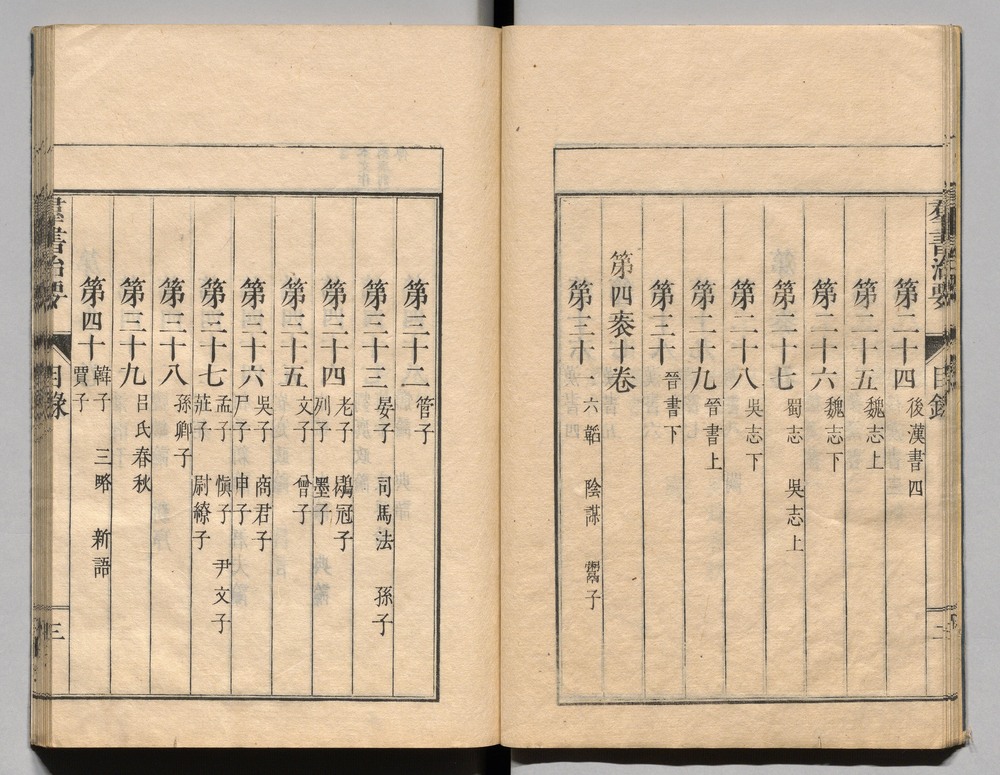 羣書治要 目錄 二
第二十四 後漢書四
第二十五 魏志上
第二十六 魏志下
第二十七 蜀志 吳志上
第二十八 吳志下
第二十九 晉書上
第三十 晉書下
第四袠十卷
第三十一 六韜 陰謀 鬻子
第三十二 管子
第三十三 晏子 司馬法 孫子
第三十四 老子 鶡冠子 列子 墨子
第三十五 文子 曾子
第三十六 吳子 商君子 尸子 申子
第三十七 孟子 愼子 尹文子 莊子 尉繚子
第三十八 孫卿子
第三十九 呂氏春秋
第四十 韓子 三略 新語 賈子
羣書治要 目錄 三